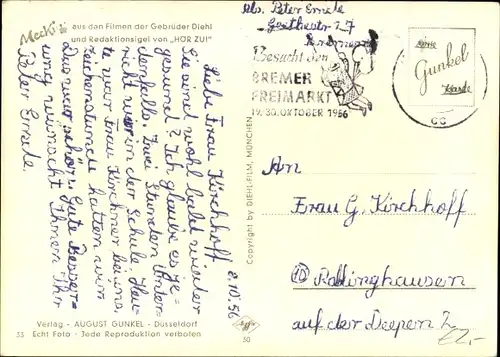 Mecki
aus den Filmen der Gebrüder Diehl
und Redaktionsigel von "HÖR ZU!"
Abs. Peter
Goethestr. 27
Besucht den
BREMER
FREIMARKT
19.-30. OKTOBER 1956
Gunkel
Karte
8.10.56
Liebe Frau Kirchhoff
Sie sind wohl bald wieder
gesund? Ich glaube es je=
denfalls. Zwei Stunden
richt war in der Schule. Heu=
te war Frau Kirchner bei uns.
Zeichenstunde hatten wir
Das war schön. Gute Besser=
ung wünscht Ihnen Ihr
Peter
Copyright by DIEHL-FILM, MÜNCHEN
An
Frau G. Kirchhoff
auf der Deepen 2
Verlag - AUGUST GUNKEL - Düsseldorf
33 Echt Foto - Jede Reproduktion verboten
30